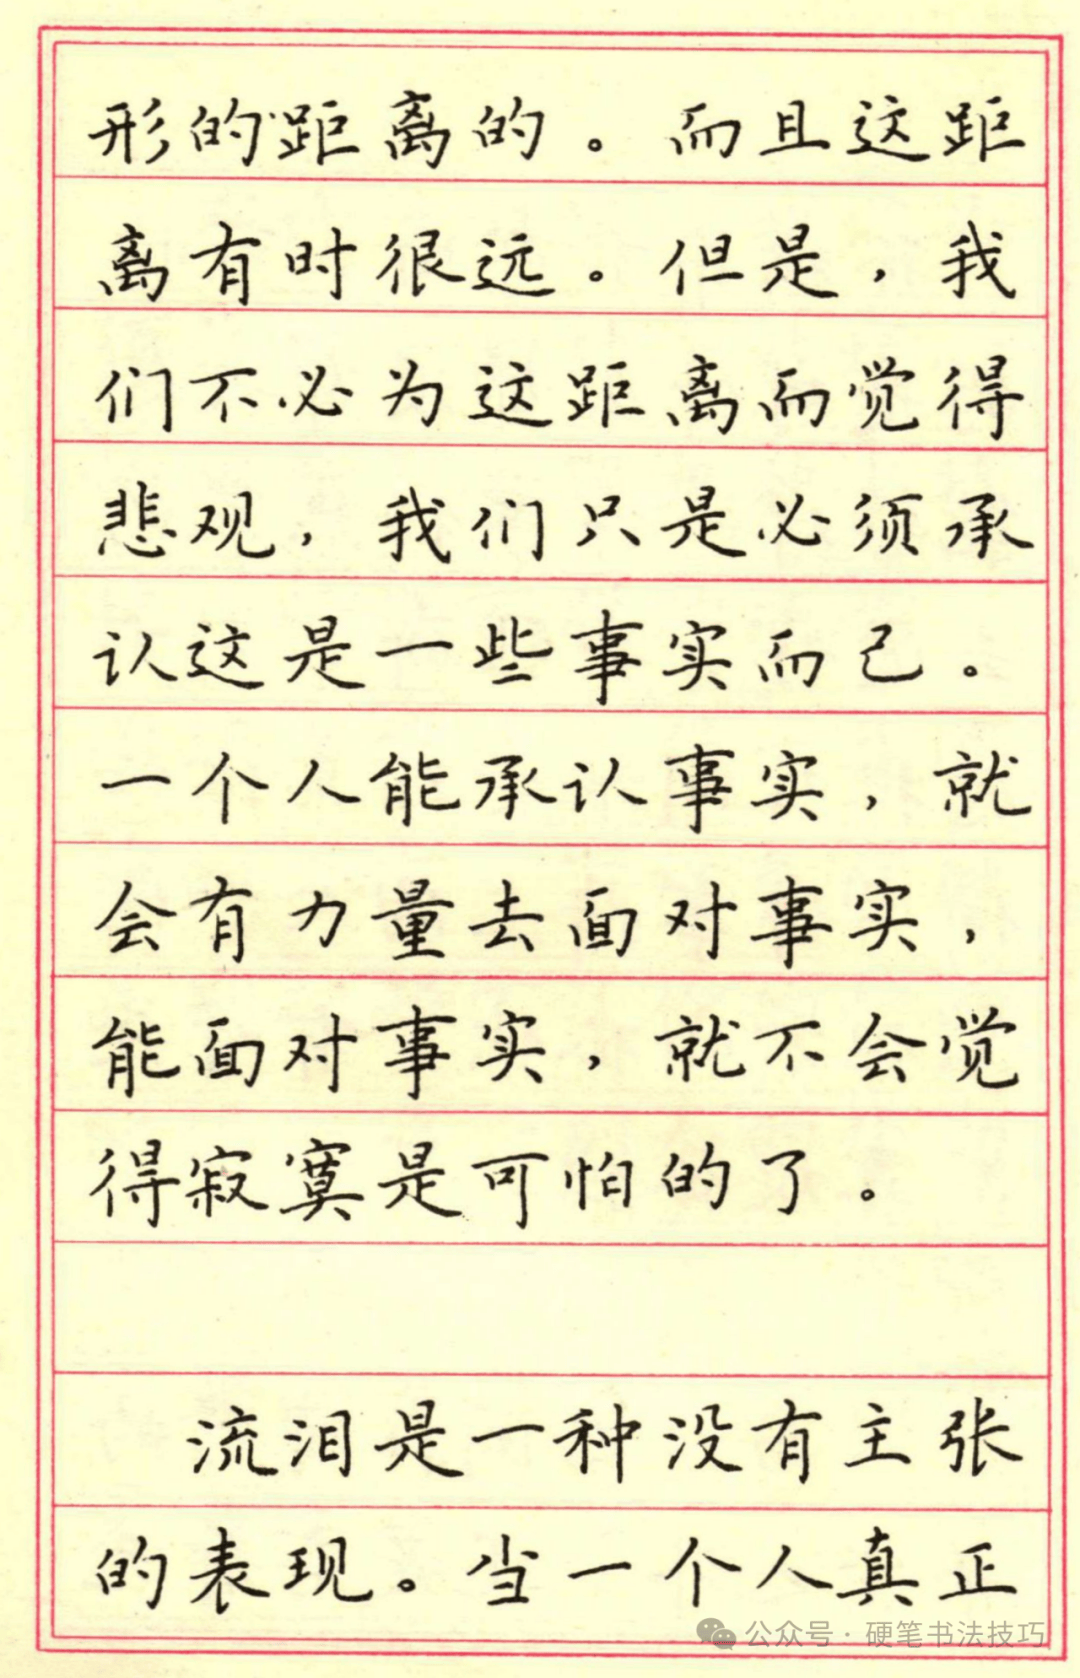 形的距离的。而且这距
离有时很远。但是，我
们不必为这距离而觉得
悲观，我们只是必须承
认这是一些事实而已。
一个人能承认事实，就
会有力量去面对事实，
能面对事实，就不会觉
得寂寞是可怕的了。
流泪是一种没有主张
的表现。当一个人真正
公众号·硬笔书法技巧